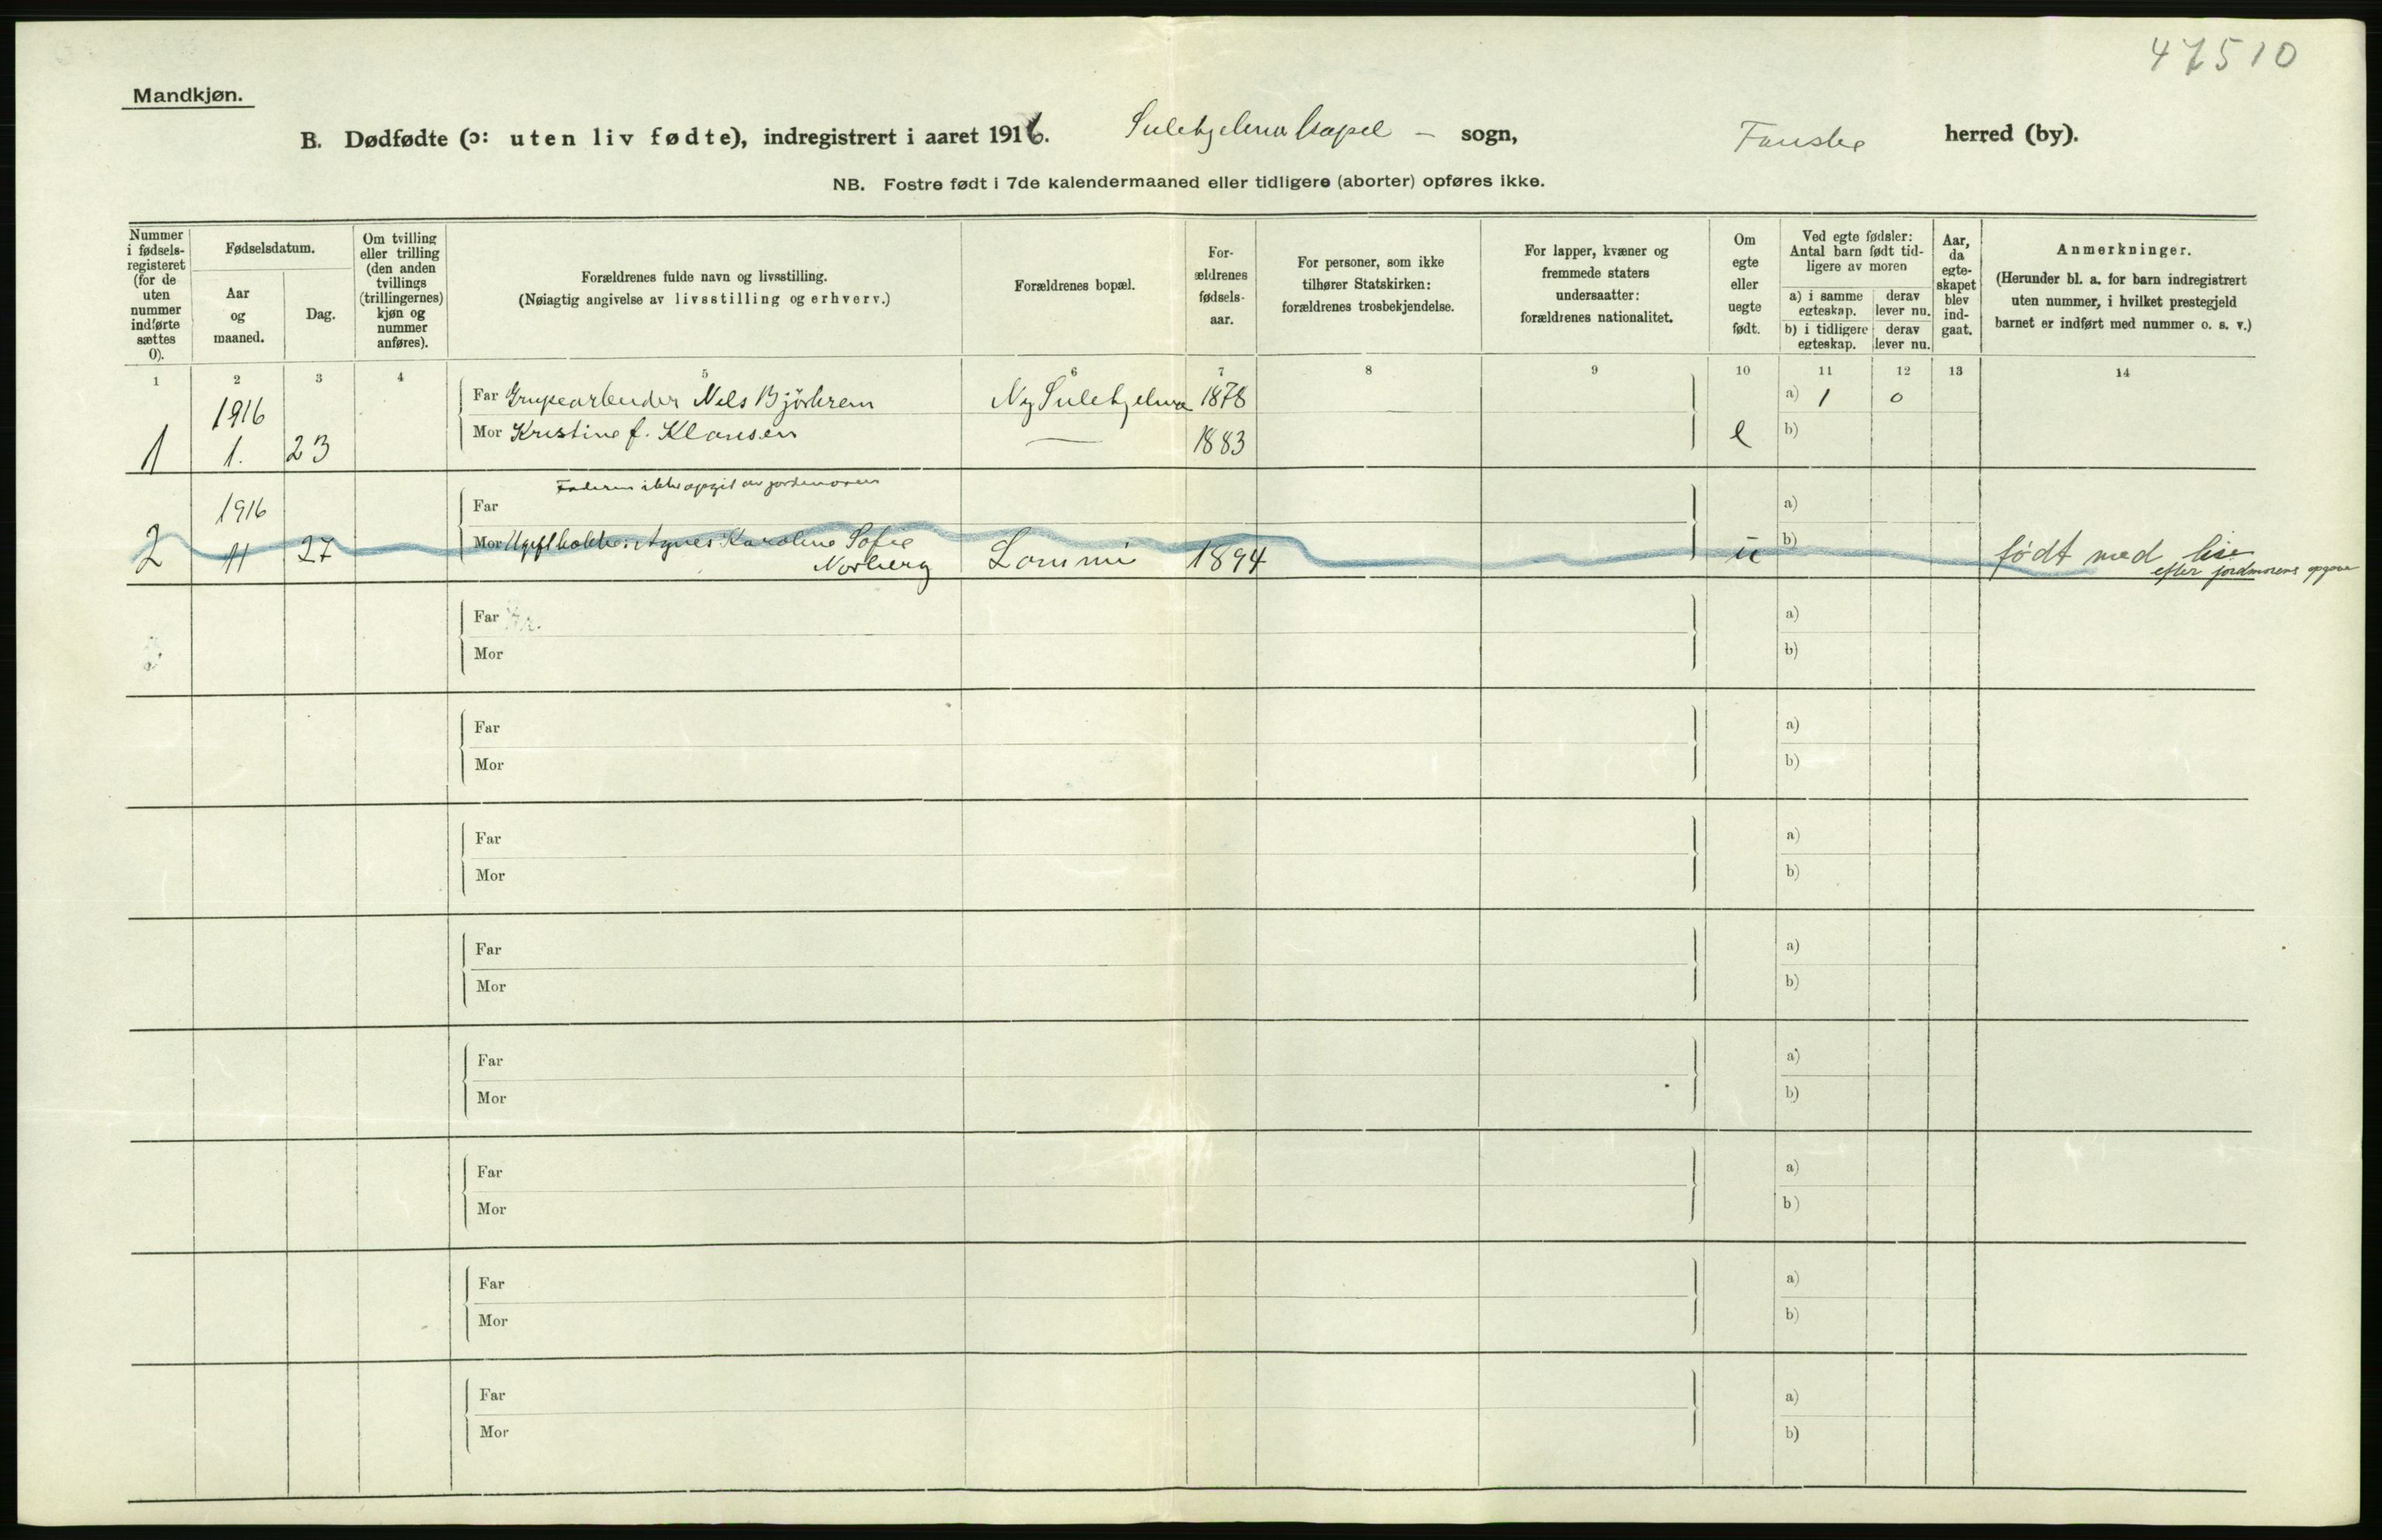 47510
Mandkjøn.
B. Dødfødte (ɔ: uten liv fødte), indregistrert i aaret 1916. Sulehjelma kapel – sogn, Fauske herred (by).
NB. Fostre født i 7de kalendermaaned eller tidligere (aborter) opføres ikke.
Nummer i fødsels-registeret (for de uten nummer indførte sættes 0).
Fødselsdatum.
Aar og maaned.
Dag.
Om tvilling eller trilling (den anden tvillings (trillingernes) kjøn og nummer anføres).
Forældrenes fulde navn og livsstilling.
(Nøiagtig angivelse av livsstilling og erhverv.)
Forældrenes bopæl.
For-ældrenes fødsels-aar.
For personer, som ikke tilhører Statskirken: forældrenes trosbekjendelse.
For lapper, kvæner og fremmede staters undersaatter: forældrenes nationalitet.
Om egte eller uegte født.
Ved egte fødsler: Antal barn født tid-ligere av moren
a) i samme egteskap. derav lever nu.
b) i tidligere egteskap. derav lever nu.
Aar, da egte-skapet blev ind-gaat.
Anmerkninger.
(Herunder bl. a. for barn indregistrert uten nummer, i hvilket prestegjeld barnet er indført med nummer o. s. v.)
1 2 3 4 5 6 7 8 9 10 11 12 13 14
1916
Far Grubearbeider Nels Bjørkrem Ny Sulehjelma 1878 a) 1 0
1 1. 23 Mor Kristine f. Klausen — 1883 e b)
Faderen ikke opgit av jordmoren
1916 Far a)
2 11 27 Mor Ugift kokke: Agnes Karoline Sofie Lommi 1894 u b) født med lise
Norberg efter jordmorens opgave
Far a)
Mor b)
Far a)
Mor b)
Far a)
Mor b)
Far a)
Mor b)
Far a)
Mor b)
Far a)
Mor b)
Far a)
Mor b)
Far a)
Mor b)